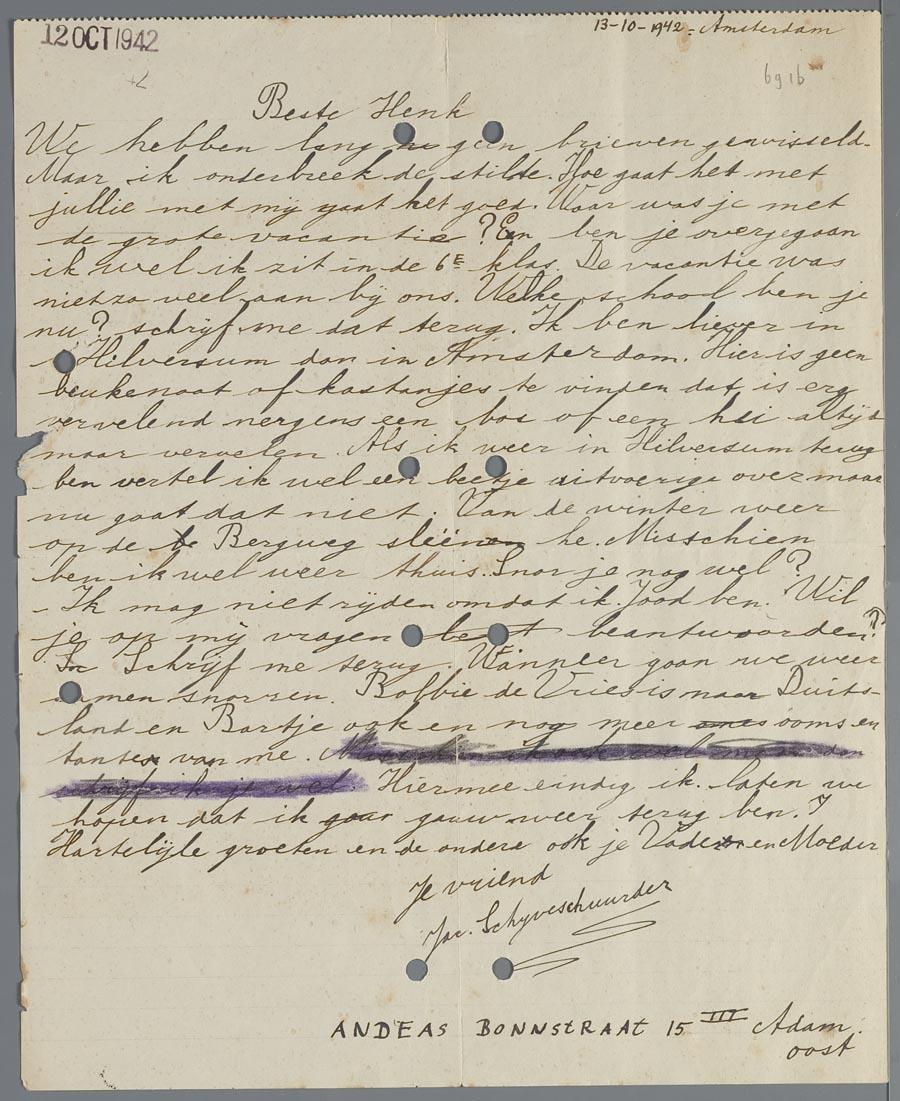 12 OCT 1942
13-10-1942 - Amsterdam
69 16
Beste Henk
We hebben lang geen brieven gewisseld.
Maar ik onderbreek de stilte. Hoe gaat het met
jullie met mij gaat het goed. Waar was je met
de grote vacantie? En ben je overgegaan
ik wel ik zit in de 6E klas. De vacantie was
niet zo veel aan bij ons. Welke school ben je
nu? schrijf me dat terug. Ik ben liever in
Hilversum dan in Amsterdam. Hier is geen
beukenoot of kastanjes te vinden dat is erg
vervelend nergens een bos of een hei altijd
maar vervelen. Als ik weer in Hilversum terug
ben vertel ik wel een beetje uitvoerige over maar
nu gaat dat niet. Van de winter weer
op de Bergweg sleën he. Misschien
ben ik wel weer thuis. Snor je nog wel?
- Ik mag niet rijden omdat ik Jood ben. Wil
je op mij vragen beantwoorden?
Schrijf me terug. Wanneer gaan we weer
samen snorren. Bobbie de Vries is naar Duits-
land en Bartje ook en nog meer ooms en
tantes van me.
schrijf ik je wel. Hiermee eindig ik. laten we
hopen dat ik gauw weer terug ben.
Hartelijke groeten en de andere ook je Vader en Moeder
Je vriend
Jac. Schyveschuurder
ANDEAS BONNSTRAAT 15 III Adam.
oost